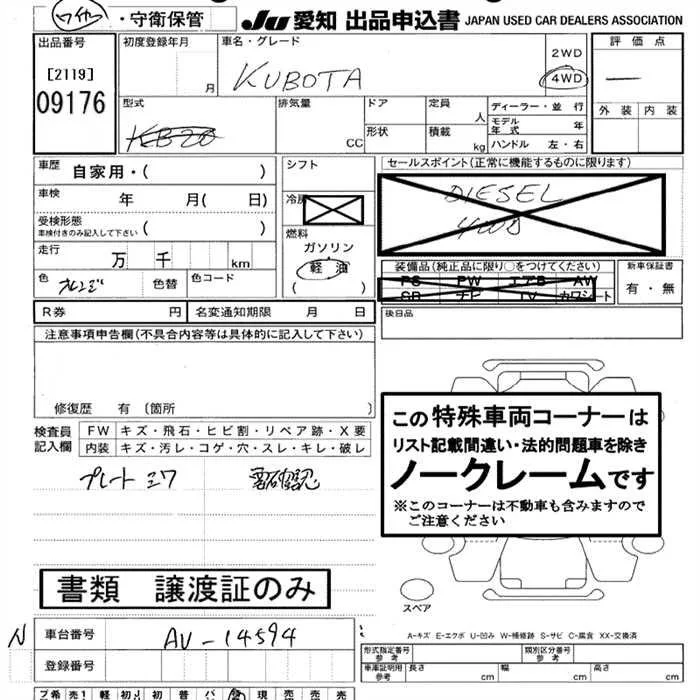 ・守衛保管 JU 愛知 出品申込書 JAPAN USED CAR DEALERS ASSOCIATION
出品番号 初度登録年月 車名・グレード 評価点
[2119] 月 KUBOTA 2WD
4WD —
09176 型式 排気量 ドア 定員 人 ディーラー・並行 外装 内装
KB20 CC 形状 積載 kg モデル年式 年
ハンドル 左・右
車歴 自家用・( ) シフト セールスポイント(正常に機能するものに限ります)
車検 年 月( 日) 冷房 DIESEL
受検形態 ( ) 4WD
車検付きのみ記入して下さい
燃料
走行 万 千 km ガソリン
軽油
( )
装備品(純正品に限り○をつけてください) 新車保証書
PS PW エアB AW
SR ナビ TV カワシート
有・無
色 オレンジ 色替 色コード
R券 円 名変通知期限 月 日 後日品
注意事項申告欄(不具合内容等は具体的に記入して下さい)
修復歴 有 〔箇所 〕
検査員記入欄 FW キズ・飛石・ヒビ割・リペア跡・X要
内装 キズ・汚レ・コゲ・穴・スレ・キレ・破レ
プレート ミワ 要確認
この特殊車両コーナーは
リスト記載間違い・法的問題車を除き
ノークレームです
※このコーナーは不動車も含みますので
ご注意ください
書類 譲渡証のみ
スペア
A-キズ E-エクボ U-凹み W-補修跡 S-サビ C-腐食 XX-交換済
N 車台番号 AV-14594
登録番号
形式指定番号 参考 類別区分番号 参考
車庫証明用 参考 長さ cm 幅 cm 高さ cm